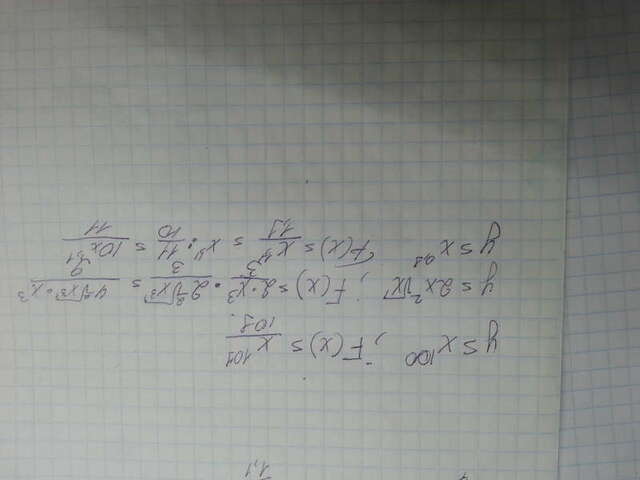 y = x^100 ; F(x) = x^101/101.
y = 2x^2√x ; F(x) = 2·x^3/3 · 2√x^3/3 = 4√x^3·x^3
y = x^0,1 F(x) = x^1,1/1,1 = x^1,1 · 11/10 = 10x^1,1/11
1,1